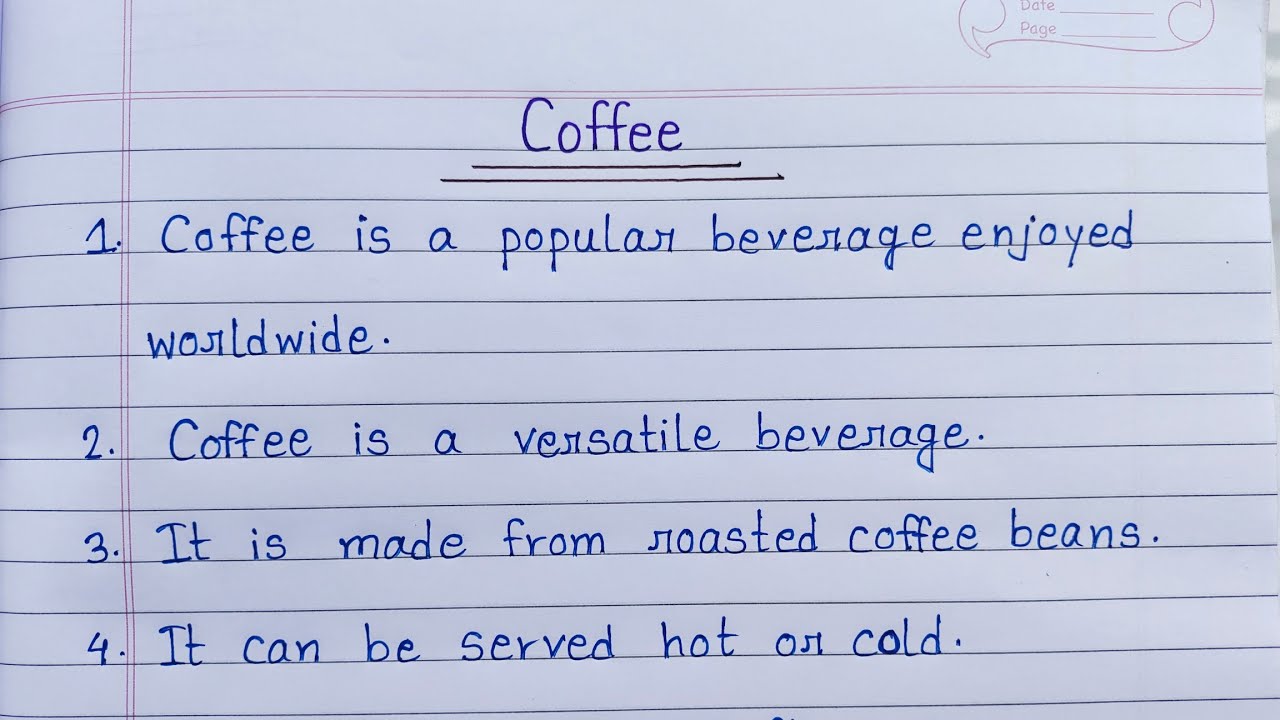 Date
Page
Coffee
1. Coffee is a popular beverage enjoyed
worldwide.
2. Coffee is a versatile beverage.
3. It is made from roasted coffee beans.
4. It can be served hot or cold.